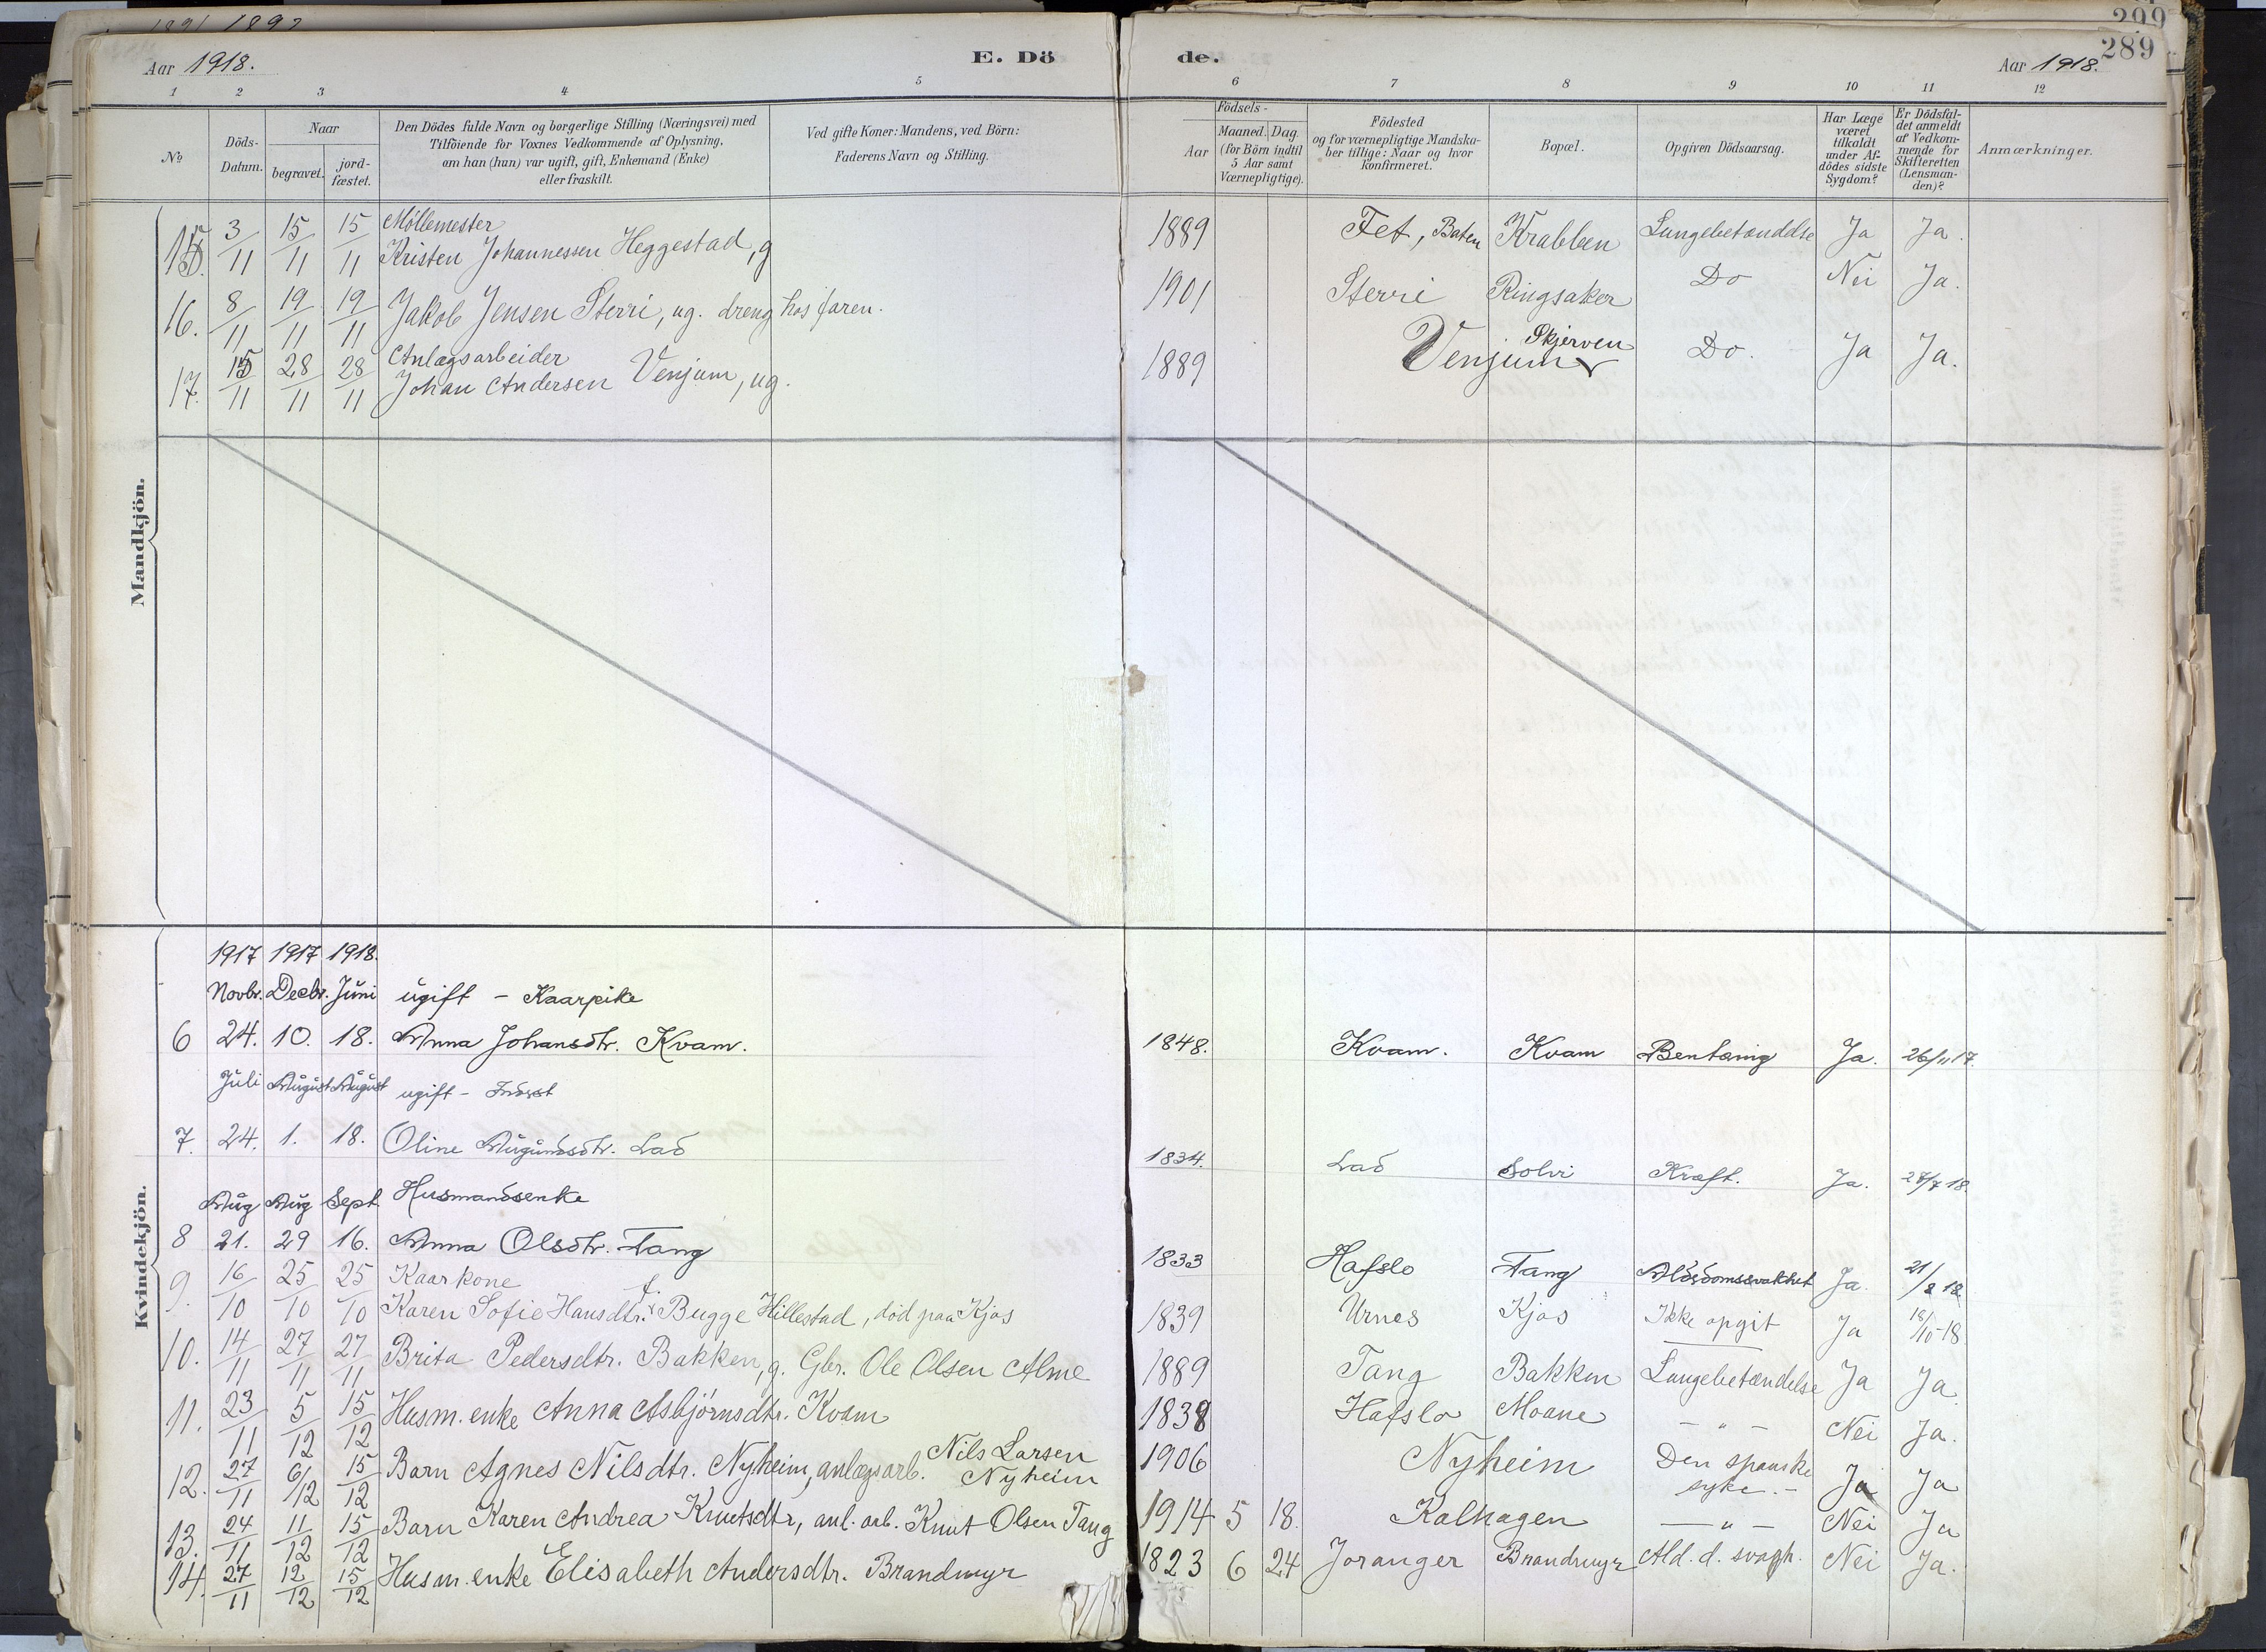 1891 1892
299
289
Aar 1918.
E. Dö de.
Aar 1918.
1 2 3 4 5 6 7 8 9 10 11 12
No
Döds-Datum.
Naar
begravet.
jordfæstet.
Den Dödes fulde Navn og borgerlige Stilling (Næringsvei) med
Tilföiende for Voxnes Vedkommende af Oplysning,
om han (hun) var ugift, gift, Enkemand (Enke)
eller fraskilt.
Ved gifte Koner: Mandens, ved Börn:
Faderens Navn og Stilling.
Födsels-
Aar
Maaned. Dag.
(for Börn indtil
5 Aar samt
Værnepligtige).
Födested
og for værnepligtige Mandska-
ber tillige: Naar og hvor
konfirmeret.
Bopæl.
Opgiven Dödsaarsag.
Har Læge
været
tilkaldt
under Af-
dödes sidste
Sygdom?
Er Dödsfal-
det anmeldt
af Vedkom-
mende for
Skifteretten
(Lensman-
den)?
Anmærkninger.
Mandkjön.
Möllemester
15. 3/11 15/11 15/11 Kristen Johannessen Heggestad, g 1889 Fet, Baten Krabben Lungebetændelse Ja Ja.
16. 8/11 19/11 19/11 Jakob Jensen Sterri, ug. dreng hos faren. 1901 Sterri Ringsaker Do Nei Ja.
Anlægsarbeider Skjerven
17. 15/11 28/11 28/11 Johan Andersen Venjum, ug. 1889 Venjum Do. Ja Ja.
Kvindekjön.
1917 1917 1918.
Novbr. Decbr. Juni ugift - Kaarpike
6 24. 10. 18. Anna Johansdtr. Kvam. 1848. Kvam. Kvam Bentæring Ja. 26/11 17.
Juli August August ugift -
7. 24. 1. 18. Oline Augundsdtr. Lad 1834. Lad Solvi Kræft. Ja. 27/7 18.
Aug Aug Sept Husmandsenke
8 21. 29 16. Anna Olsdtr. Tang 1833 Hafslo Tang Alderdomssvakhet Ja. 21/8 18
Kaarkone
9. 16/10 25/10 25/10 Karen Sofie Hansdtr. f. Bugge Hillestad, död paa Kjos 1839 Urnes Kjos Ikke opgit Ja 18/10-18
10. 14/11 27/11 27/11 Brita Pedersdtr. Bakken, g. Gbr. Ole Olsen Alme 1889 Tang Bakken Lungebetændelse Ja Ja
11. 23/11 5/12 15/12 Husm. enke Anna Asbjörnsdtr. Kvam 1838 Hafslo Moane - " - Nei Ja.
12. 27/11 6/12 15/12 Barn Agnes Nilsdtr. Nyheim, anlægsarb. Nils Larsen Nyheim 1906 Nyheim Den spanske syke. - Ja Ja
13. 24/11 11/12 15/12 Barn Karen Andrea Knutsdtr, anl. arb. Knut Olsen Tang 1914 5 18. Kalhagen - " - Nei Ja
14. 27/11 12/12 15/12 Husm. enke Elisabeth Andersdtr. Brandmyr 1823 6 24 Joranger Brandmyr Ald. d. svagh. Nei Ja.